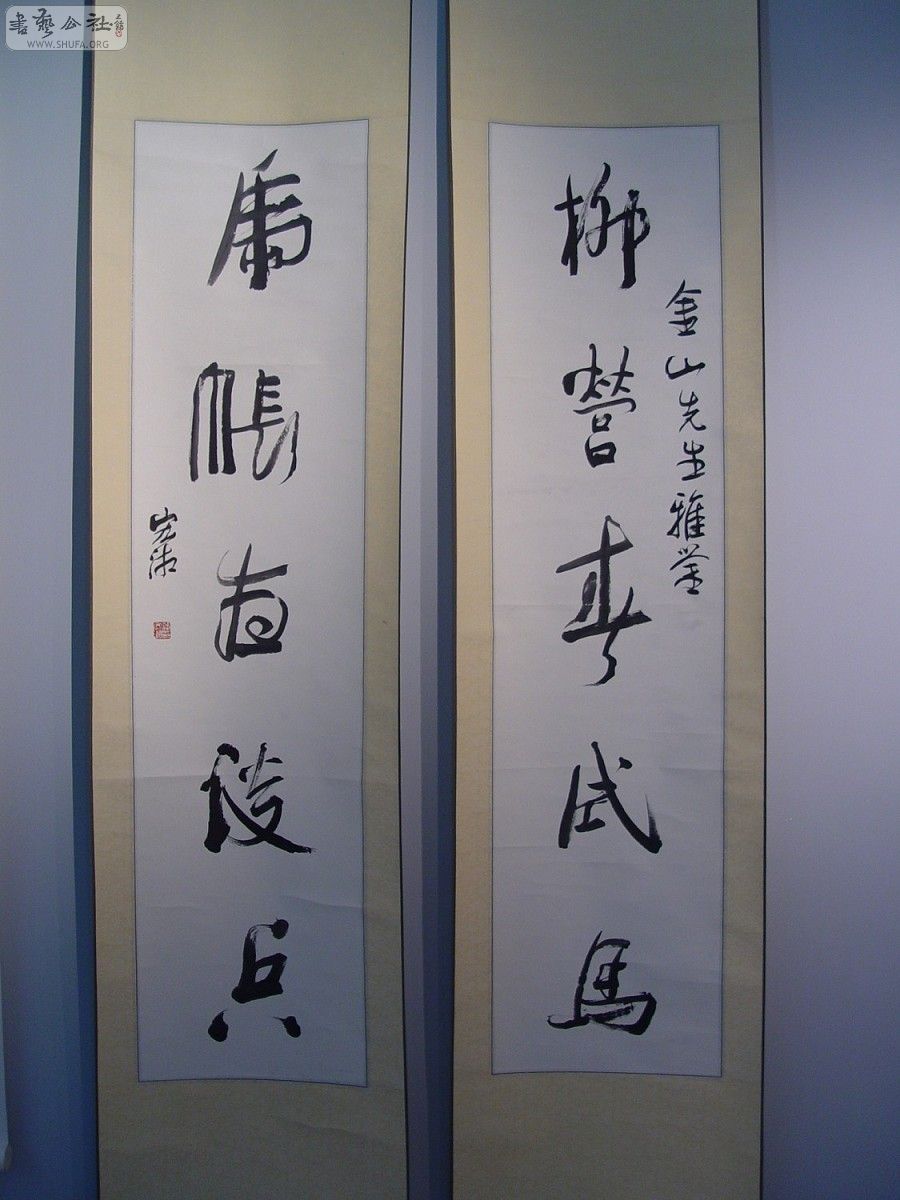 書藝公社
WWW.SHUFA.ORG
金山先生雅鑒
柳營春試馬
虎帳夜談兵